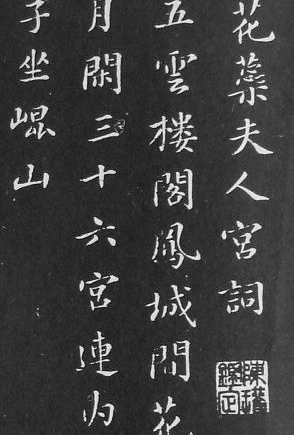 花蘂夫人宮詞
五雲樓閣鳳城間花
月閑三十六宮連内
子坐崐山